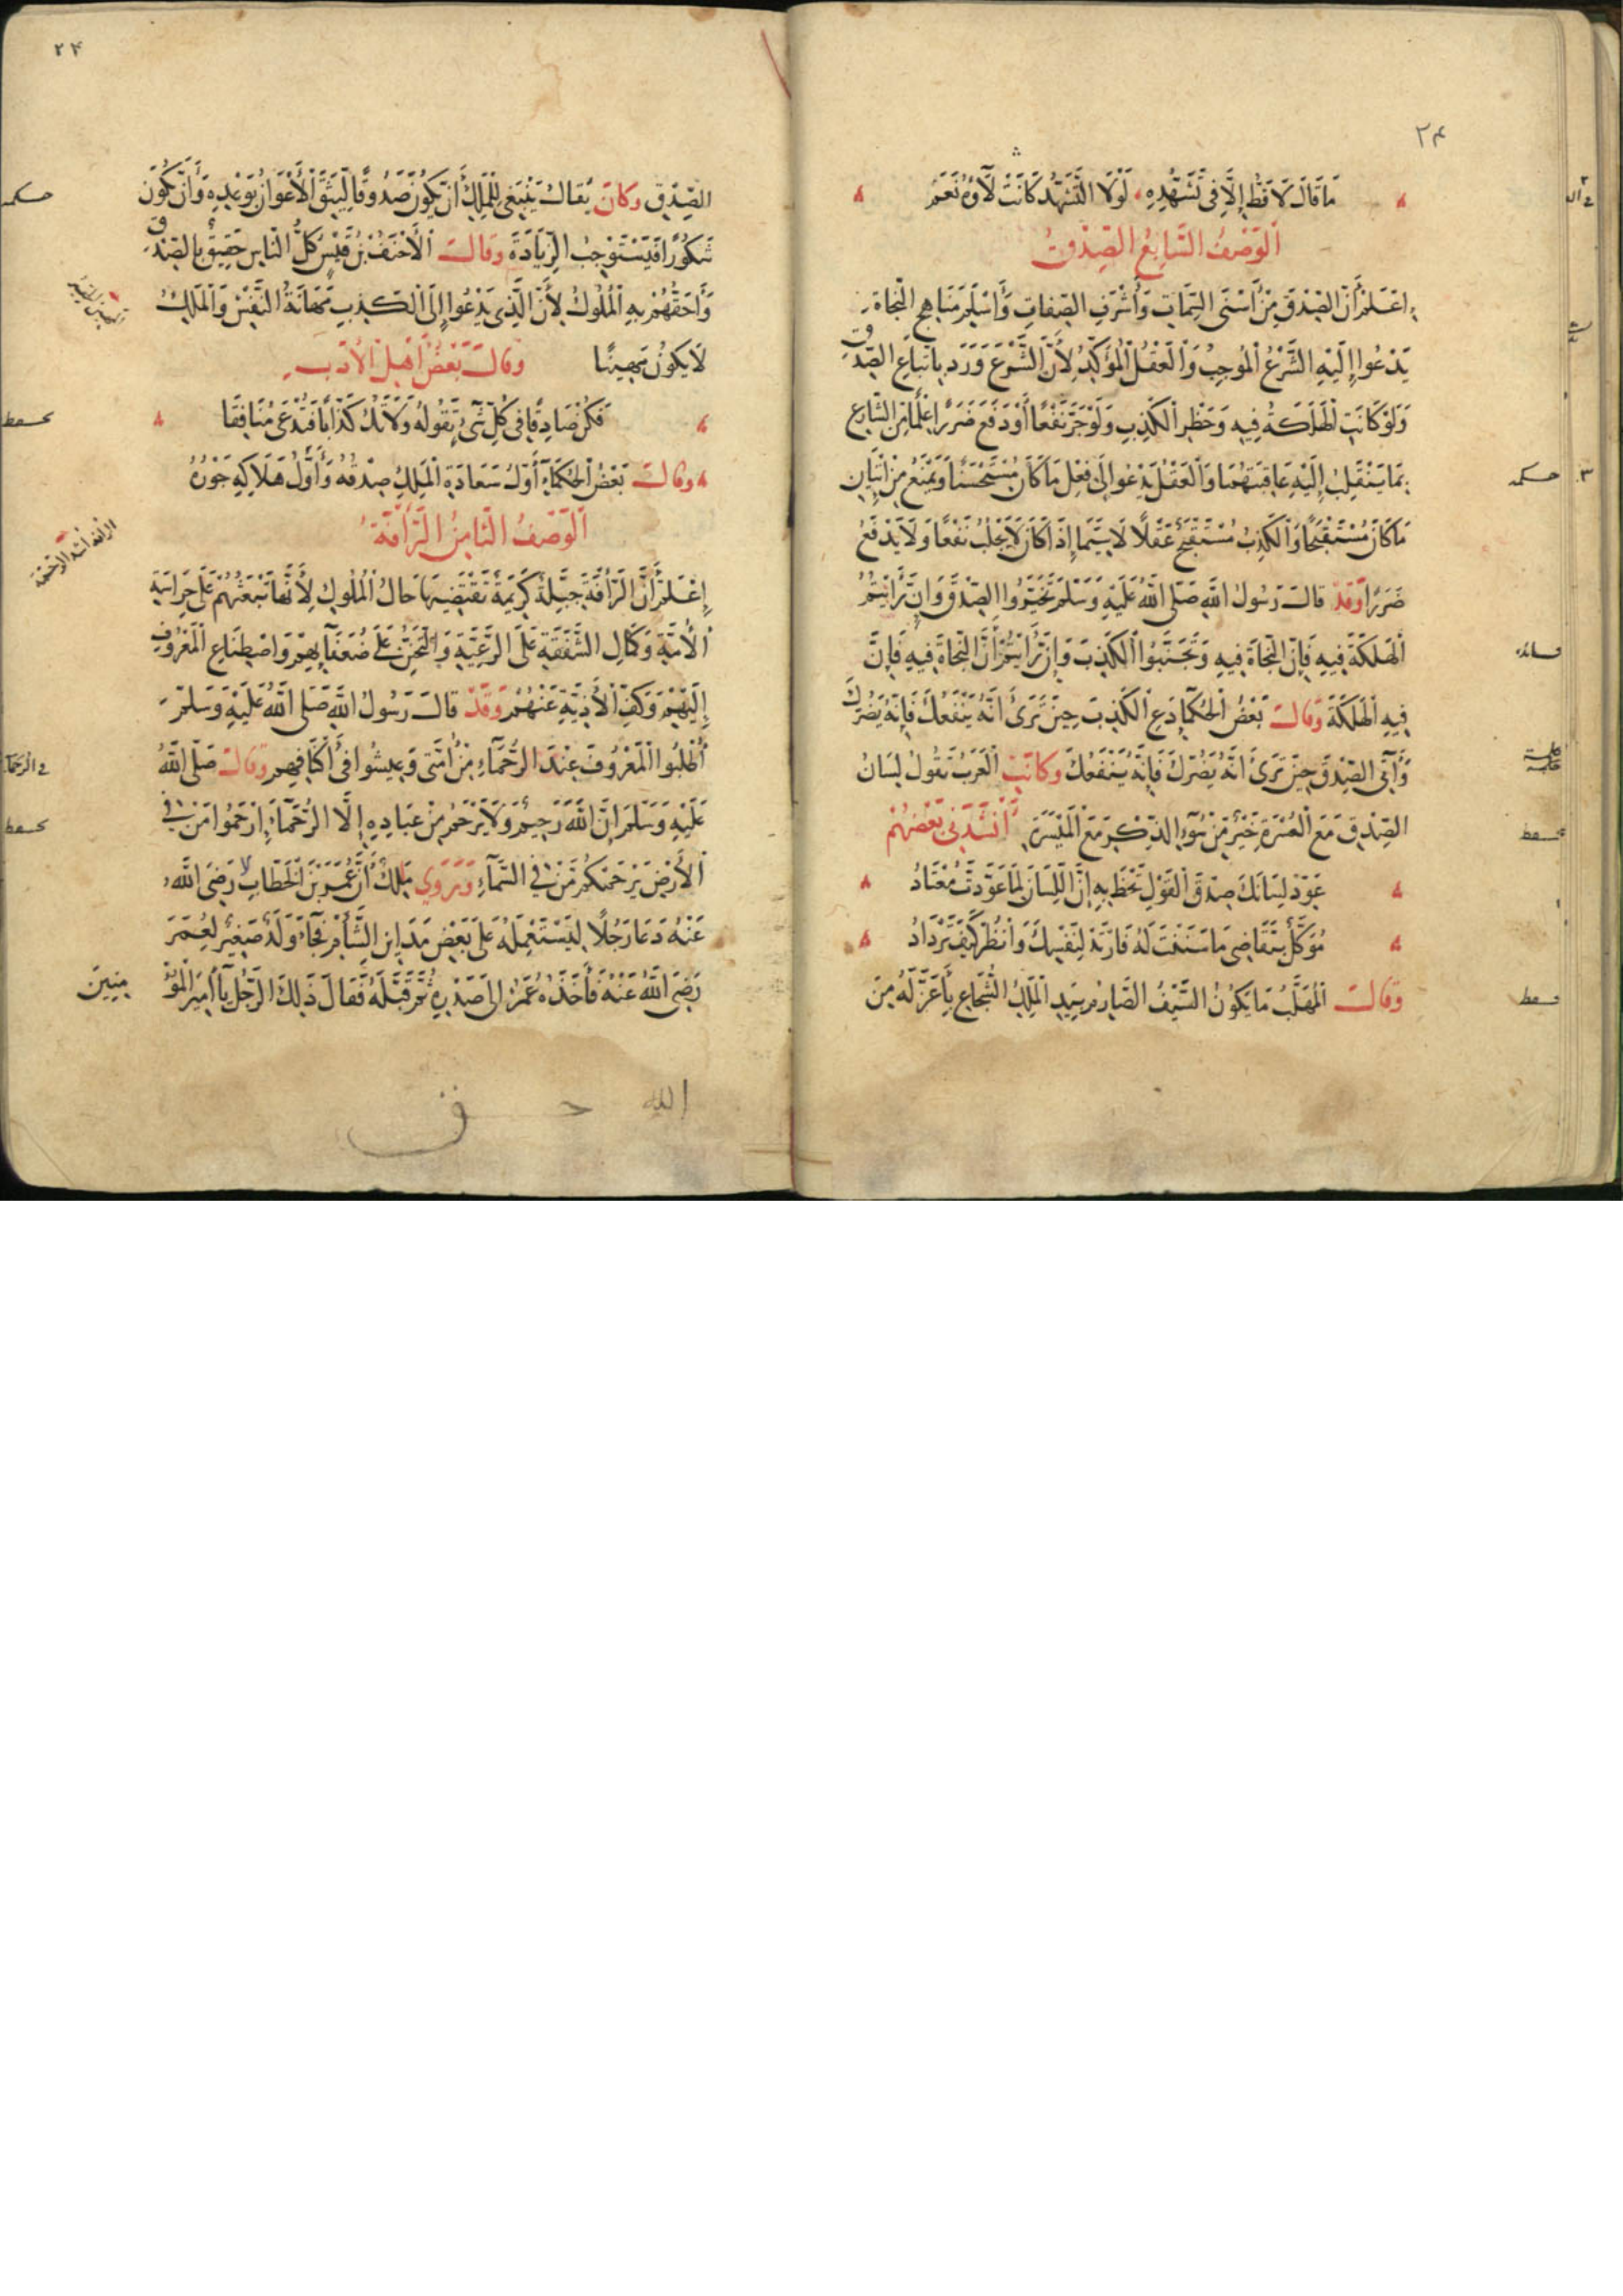 ٢٤
مَا قَالَ لَا قَطُّ إِلَّا فِي تَشَهُّدِهِ لَوْلَا التَّشَهُّدُ كَانَتْ لَاؤُهُ نَعَمُ
الوَصْفُ السَّابِعُ الصِّدْقُ
اعْلَمْ أَنَّ الصِّدْقَ مِنْ أَسْنَى السِّمَاتِ وَأَشْرَفِ الصِّفَاتِ وَأَسْلَمِ مَنَاهِجِ النَّجَاةِ
يَدْعُوا إِلَيْهِ الشَّرْعُ الْمُوجِبُ وَالْعَقْلُ الْمُؤَكِّدُ لِأَنَّ الشَّرْعَ وَرَدَ بِاتِّبَاعِ الصِّدْقِ
وَلَوْ كَانَتِ الْهَلَكَةُ فِيهِ وَحَظْرِ الْكَذِبِ وَلَوْ جَرَّ نَفْعًا أَوْ دَفَعَ ضَرَرًا عِلْمًا مِنَ الشَّارِعِ
بِمَا يَنْقَلِبُ إِلَيْهِ عَاقِبَتُهُمَا وَالْعَقْلُ يَدْعُوا إِلَى فِعْلِ مَا كَانَ مُسْتَحْسَنًا وَيَمْنَعُ مِنْ إِتْيَانِ
مَا كَانَ مُسْتَقْبَحًا وَالْكَذِبُ مُسْتَقْبَحٌ عَقْلًا لَا سِيَّمَا إِذَا كَانَ لَا يَجْلُبُ نَفْعًا وَلَا يَدْفَعُ
ضَرَرًا وَقَدْ قَالَ رَسُولُ اللَّهِ صَلَّى اللَّهُ عَلَيْهِ وَسَلَّمَ تَحَرَّوُا الصِّدْقَ وَإِنْ رَأَيْتُمُ
الْهَلَكَةَ فِيهِ فَإِنَّ النَّجَاةَ فِيهِ وَتَجَنَّبُوا الْكَذِبَ وَإِنْ رَأَيْتُمْ أَنَّ النَّجَاةَ فِيهِ فَإِنَّ
فِيهِ الْهَلَكَةَ وَقَالَ بَعْضُ الْحُكَمَاءِ دَعِ الْكَذِبَ حِينَ تَرَى أَنَّهُ يَنْفَعُكَ فَإِنَّهُ يَضُرُّكَ
وَأْتِي الصِّدْقَ حِينَ تَرَى أَنَّهُ يَضُرُّكَ فَإِنَّهُ يَنْفَعُكَ وَكَانَتِ الْعَرَبُ تَقُولُ لِسَانُ
الصِّدْقِ مَعَ الْعُسْرَةِ خَيْرٌ مِنْ سُوءِ الذِّكْرِ مَعَ الْمَيْسَرَةِ أَنْشَدَنِي بَعْضُهُمْ
عَوِّدْ لِسَانَكَ صِدْقَ الْقَوْلِ تَحْظَ بِهِ إِنَّ اللِّسَانَ لِمَا عَوَّدْتَ مُعْتَادُ
مُوَكَّلٌ بِتَقَاضِي مَا سَنَنْتَ لَهُ فَارْتَدْ لِنَفْسِكَ وَانْظُرْ كَيْفَ تَرْدَادُ
وَقَالَ الْمُهَلَّبُ مَا يَكُونُ السَّيْفُ الصَّارِمُ بِيَدِ الْمَلِكِ الشُّجَاعِ بِأَعَزَّ لَهُ مِنَ
٢٤
الصِّدْقِ وَكَانَ يُقَالُ يَنْبَغِي لِلْمَلِكِ أَنْ يَكُونَ صَدُوقًا لِيَثِقَ الْأَعْوَانُ بِوَعْدِهِ وَأَنْ يَكُونَ
شَكُورًا فَيَسْتَوْجِبُ الزِّيَادَةَ وَقَالَ الْأَحْنَفُ بْنُ قَيْسٍ كُلُّ النَّاسِ حَقِيقٌ بِالصِّدْقِ
وَأَحَقُّهُمْ بِهِ الْمُلُوكُ لِأَنَّ الَّذِي يَدْعُوا إِلَى الْكَذِبِ مَهَانَةُ النَّفْسِ وَالْمَلِكُ
لَا يَكُونُ مَهِينًا وَقَالَ بَعْضُ أَهْلِ الْأَدَبِ
فَكُنْ صَادِقًا فِي كُلِّ شَيْءٍ تَقُولُهُ وَلَا تَكُ كَذَّابًا فَتُدْعَى مُنَافِقَا
وَقَالَ بَعْضُ الْحُكَمَاءِ أَوَّلُ سَعَادَةِ الْمَلِكِ صِدْقُهُ وَأَوَّلُ هَلَاكِهِ جَوْرُهُ
الْوَصْفُ الثَّامِنُ الرَّأْفَةُ
اعْلَمْ أَنَّ الرَّأْفَةَ جِبِلَّةٌ كَرِيمَةٌ تَقْتَضِيهَا حَالُ الْمُلُوكِ لِأَنَّهَا تَبْعَثُهُمْ عَلَى حِرَاسَةِ
الْأُمَّةِ وَكَمَالِ الشَّفَقَةِ عَلَى الرَّعِيَّةِ وَالتَّحَنُّنِ عَلَى ضُعَفَائِهِمْ وَاصْطِنَاعِ الْمَعْرُوفِ
إِلَيْهِمْ وَكَفِّ الْأَذِيَّةِ عَنْهُمْ وَقَدْ قَالَ رَسُولُ اللَّهِ صَلَّى اللَّهُ عَلَيْهِ وَسَلَّمَ
أُطْلُبُوا الْمَعْرُوفَ عِنْدَ الرُّحَمَاءِ مِنْ أُمَّتِي وَعِيشُوا فِي أَكْنَافِهِمْ وَقَالَ صَلَّى اللَّهُ
عَلَيْهِ وَسَلَّمَ إِنَّ اللَّهَ رَحِيمٌ وَلَا يَرْحَمُ مِنْ عِبَادِهِ إِلَّا الرُّحَمَاءَ إِرْحَمُوا مَنْ فِي
الْأَرْضِ يَرْحَمْكُمْ مَنْ فِي السَّمَاءِ وَيَرْوِي مَالِكٌ أَنَّ عُمَرَ بْنَ الْخَطَّابِ رَضِيَ اللَّهُ
عَنْهُ دَعَا رَجُلًا لِيَسْتَعْمِلَهُ عَلَى بَعْضِ مَدَاينِ الشَّأْمِ فَجَاءَ وَلَدٌ صَغِيرٌ لِعُمَرَ
رَضِيَ اللَّهُ عَنْهُ فَأَخَذَهُ عُمَرُ إِلَى صَدْرِهِ ثُمَّ قَبَّلَهُ فَقَالَ ذَلِكَ الرَّجُلُ يَا أَمِيرَ الْمُؤْ
مِنِينَ